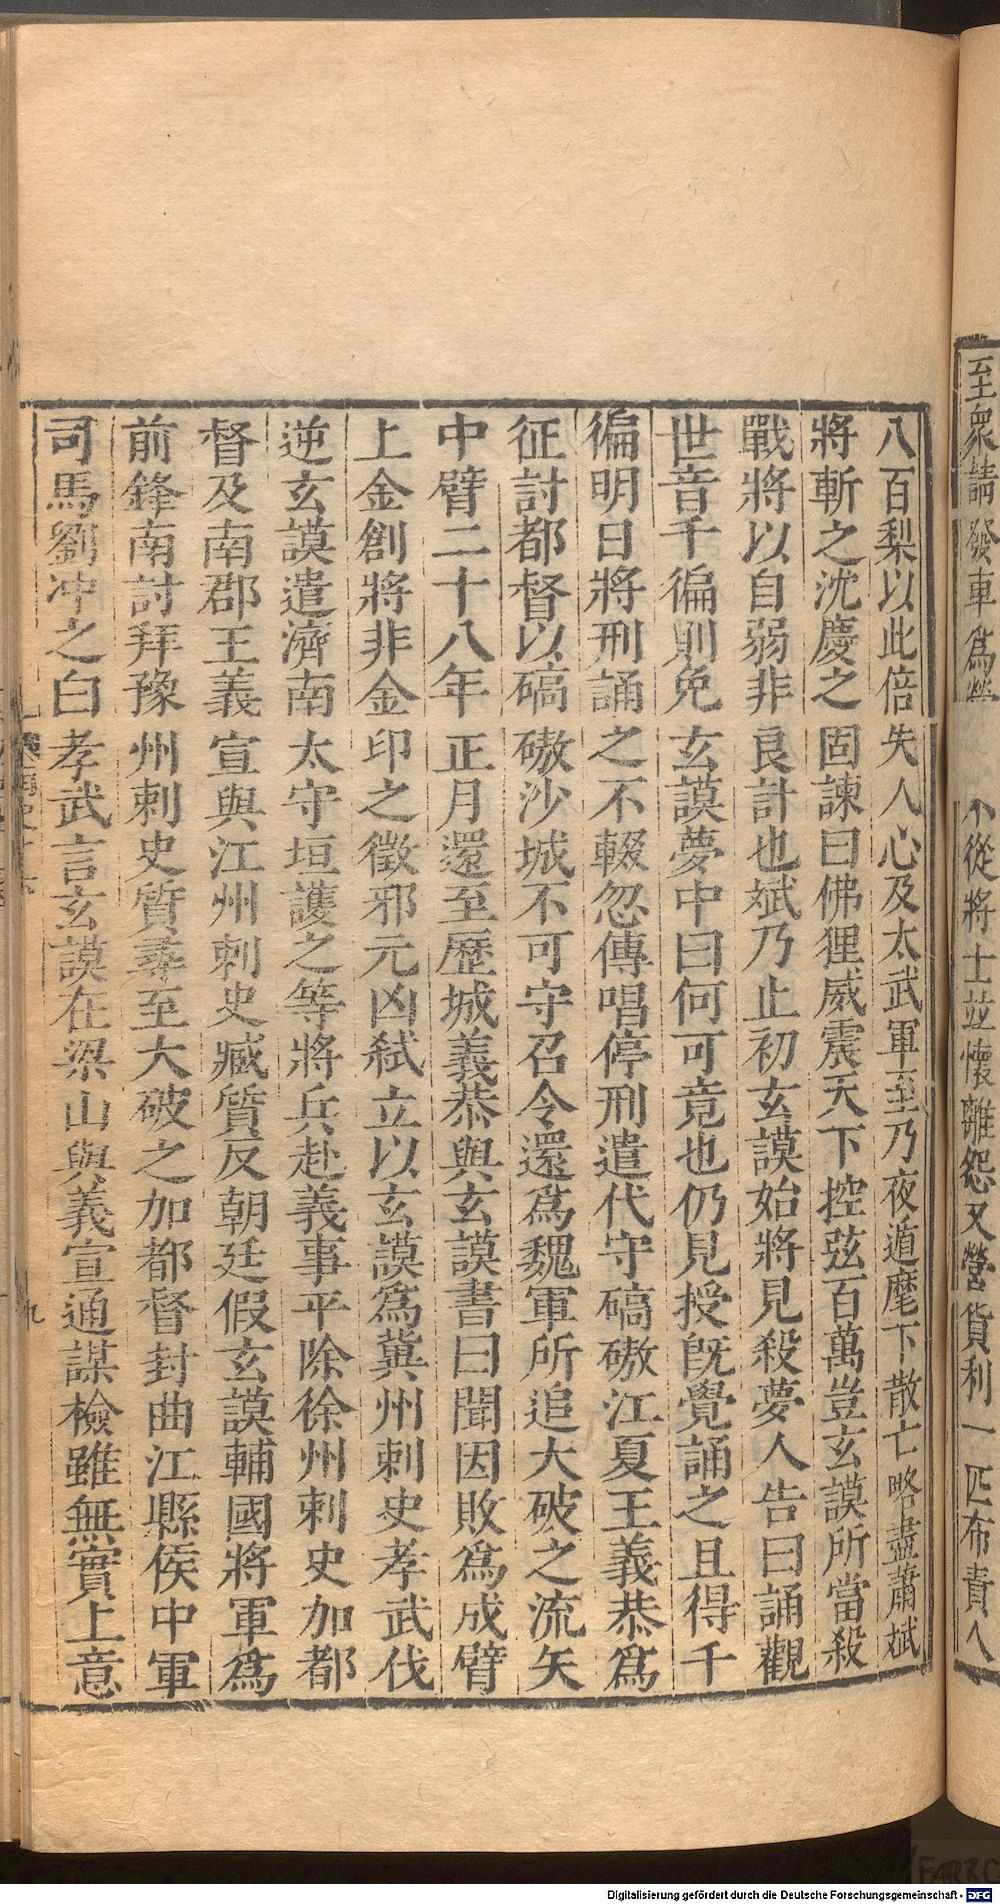 至衆請發車爲營不從將士並懷離怨又營貨利一匹布責人
八百梨以此倍失人心及太武軍至乃夜遁麾下散亡略盡蕭斌
將斬之沈慶之固諫曰佛狸威震天下控弦百萬豈玄謨所當殺
戰將以自弱非良計也斌乃止初玄謨始將見殺夢人告曰誦觀
世音千徧則免玄謨夢中曰何可竟也仍見授旣覺誦之且得千
徧明日將刑誦之不輟忽傳唱停刑遣代守碻磝江夏王義恭爲
征討都督以碻磝沙城不可守召令還爲魏軍所追大破之流矢
中臂二十八年正月還至歷城義恭與玄謨書曰聞因敗爲成臂
上金創將非金印之徵邪元凶弑立以玄謨爲冀州刺史孝武伐
逆玄謨遣濟南太守垣護之等將兵赴義事平除徐州刺史加都
督及南郡王義宣與江州刺史臧質反朝廷假玄謨輔國將軍爲
前鋒南討拜豫州刺史質尋至大破之加都督封曲江縣侯中軍
司馬劉冲之白孝武言玄謨在梁山與義宣通謀檢雖無實上意
九
Digitalisierung gefördert durch die Deutsche Forschungsgemeinschaft - DFG